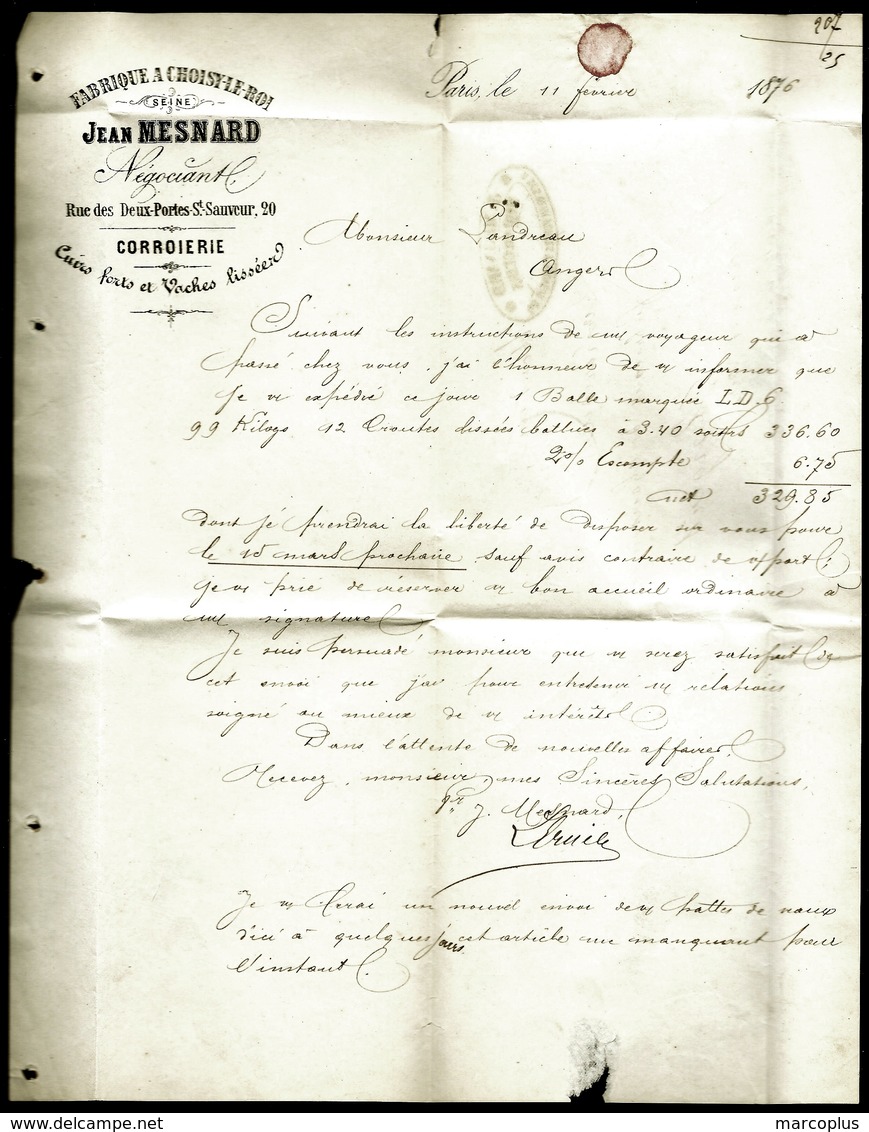 207
25
FABRIQUE A CHOISY-LE-ROI
SEINE
JEAN MESNARD
Négociant
Rue des Deux-Portes-St-Sauveur, 20
CORROIERIE
Cuirs forts et Vaches lissées
Paris, le 11 février 1876
Monsieur Landreau
Angers
Suivant les instructions de mn voyageur qui a
passé chez vous, j'ai l'honneur de vs informer que
je vs expédie ce jour 1 Balle marquée L.D.6.
99 Kilogs 12 Croutes lissées battues à 3.40 336.60
2% Escompte 6.75
net 329.85
dont je prendrai la liberté de disposer sur vous pour
le 15 mars prochain sauf avis contraire de vs part;
je vs prie de réserver vs bon accueil ordinaire à
ma signature
Je suis persuadé monsieur que vs serez satisfait de
cet envoi que j'ai pour entretenir ns relations
soigné au mieux de vs intérêts
Dans l'attente de nouvelles affaires,
Recevez, monsieur, mes Sincères Salutations,
pr J. Mesnard,
Je vs ferai un nouvel envoi de vs pattes de vaux
d'ici à quelques jours cet article me manquant pour
l'instant.
marcoplus